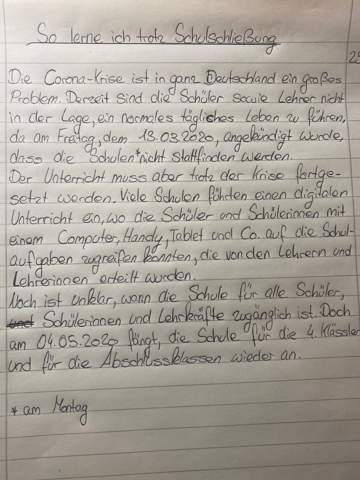 So lerne ich trotz Schulschließung
Die Corona-Krise ist in ganz Deutschland ein großes
Problem. Derzeit sind die Schüler sowie Lehrer nicht
in der Lage, ein normales tägliches Leben zu führen,
da am Freitag, dem 13.03.2020, angekündigt wurde,
dass die Schulen* nicht stattfinden werden.
Der Unterricht muss aber trotz der Krise fortge-
setzt werden. Viele Schulen führten einen digitalen
Unterricht ein, wo die Schüler und Schülerinnen mit
einem Computer, Handy, Tablet und Co. auf die Schul-
aufgaben zugreifen konnten, die von den Lehrern und
Lehrerinnen erteilt wurden.
Noch ist unklar, wann die Schule für alle Schüler,
und Schülerinnen und Lehrkräfte zugänglich ist. Doch
am 04.05.2020 fängt, die Schule für die 4. Klässler
und für die Abschlussklassen wieder an.
* am Montag